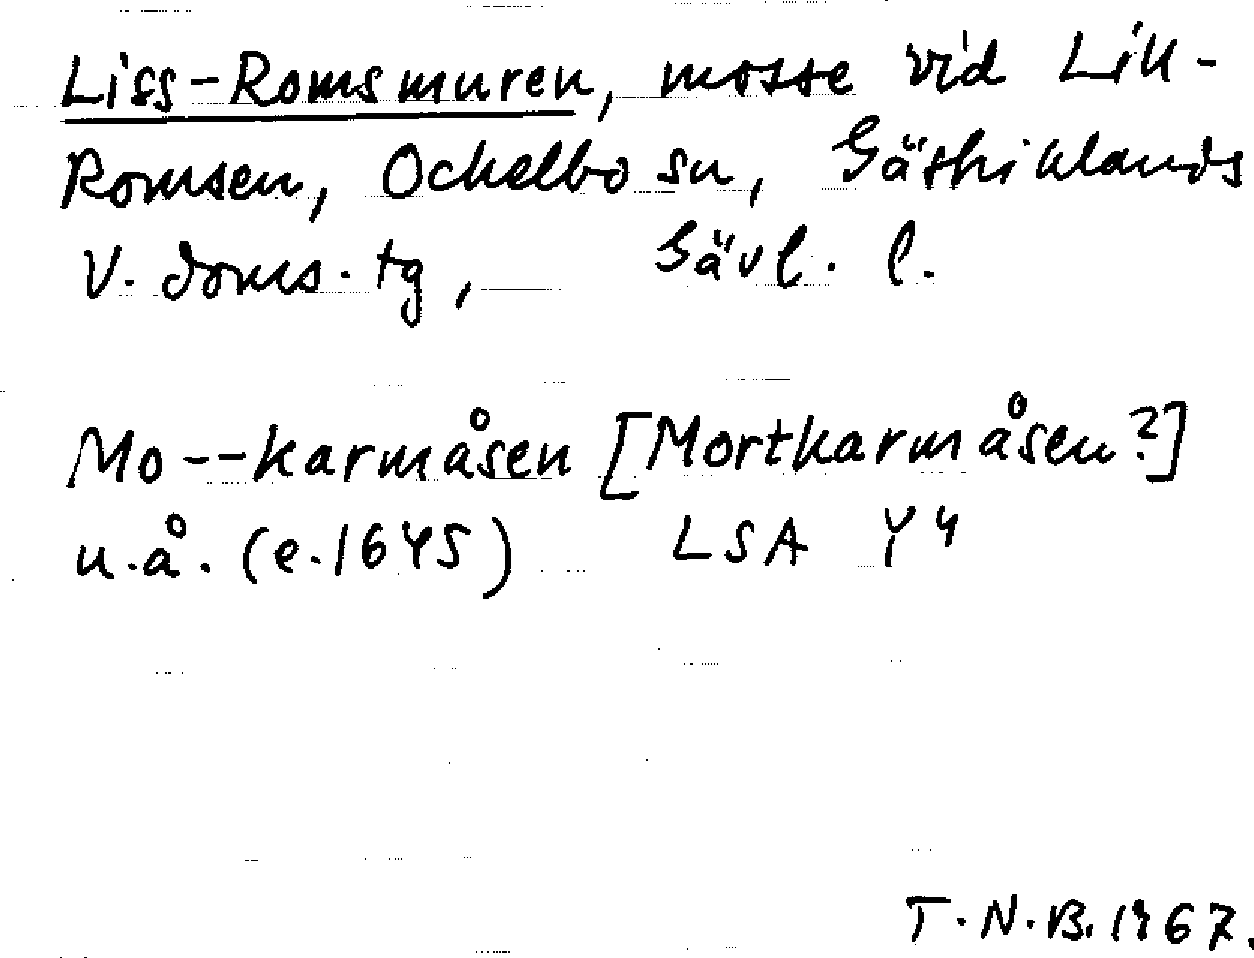 Liss-Romsmuren, mosse vid Lill-
Romsen, Ockelbo sn, Gästriklands
V. doms. tg, Gävl. l.
Mo--karmåsen [Mortkarmåsen?]
u.å. (e. 1645) LSA Y4
T.N.B. 1967.